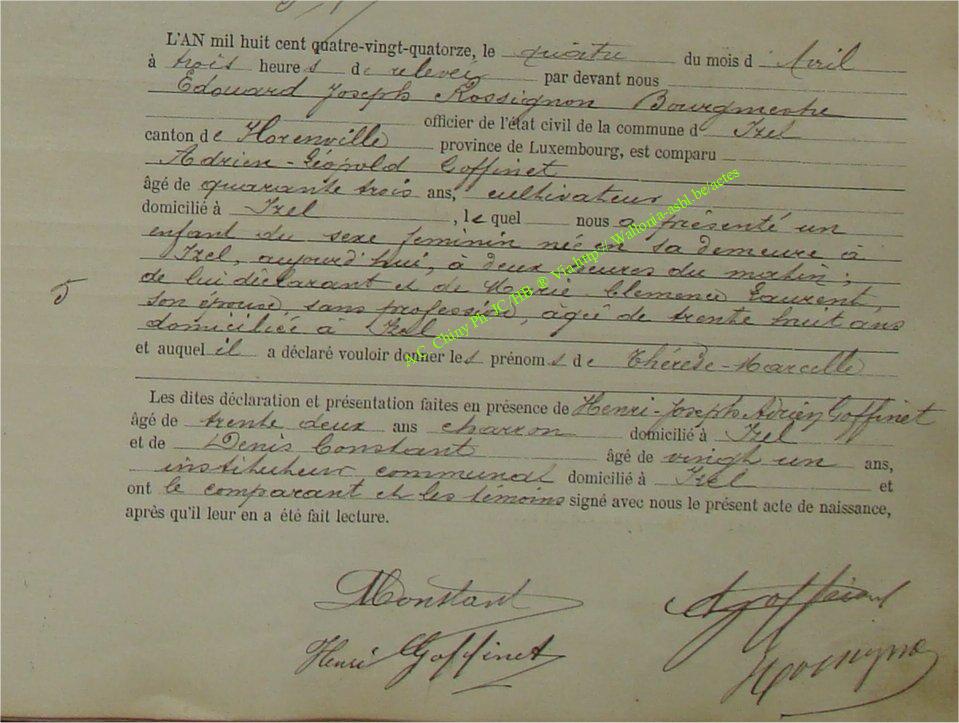 L'AN mil huit cent quatre-vingt-quatorze, le quatre du mois d'Avril
à trois heures de relevée par devant nous
Edouard Joseph Rossignon Bourgmestre
officier de l'état civil de la commune d'Izel
canton de Florenville province de Luxembourg, est comparu
Adrien-Léopold Goffinet
âgé de quarante trois ans, cultivateur
domicilié à Izel, lequel nous a présenté un
enfant du sexe féminin née en sa demeure à
Izel, aujourd'hui, à deux heures du matin;
5
de lui déclarant et de Marie Clemence Laurent
son épouse, sans profession, âgée de trente huit ans
domiciliée à Izel
et auquel il a déclaré vouloir donner les prénoms de Thérèse-Marcelle
Les dites déclaration et présentation faites en présence de Henri-Joseph Adrien Goffinet
âgé de trente deux ans charron domicilié à Izel
et de Denis Constant âgé de vingt un ans,
instituteur communal domicilié à Izel et
ont le comparant et les témoins signé avec nous le présent acte de naissance,
après qu'il leur en a été fait lecture.
DConstant
AGoffinet
Henri Goffinet
Rossignon
A.C. Chiny Ph. JC/HB ® Via http:// Wallonia-asbl.be/actes